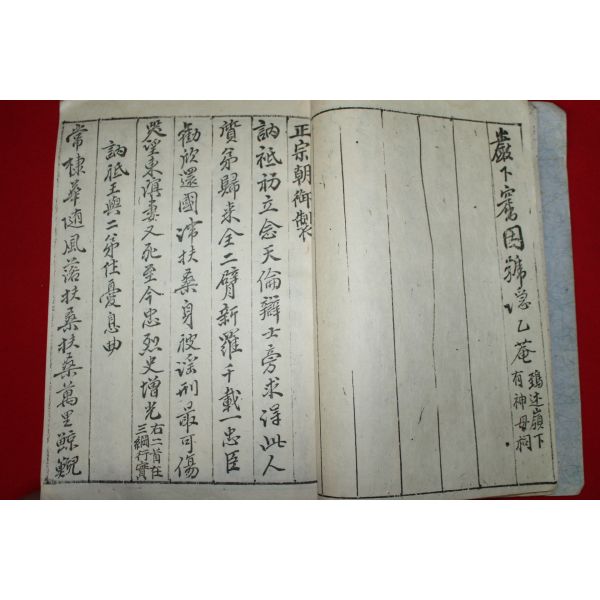 巖下窩因號隱乙菴 鵄述嶺下
有神母祠
正宗朝御製
訥祗初立念天倫辯士旁求得此人
質弟歸來全二臂新羅千載一忠臣
勸欣還國滯扶桑身被淫刑最可傷
哭望東溟妻又死至今忠烈史增光 右二首在
三綱行實
訥祗王與二弟作憂息曲
常棣華隨風落扶桑扶桑萬里鯨鯢